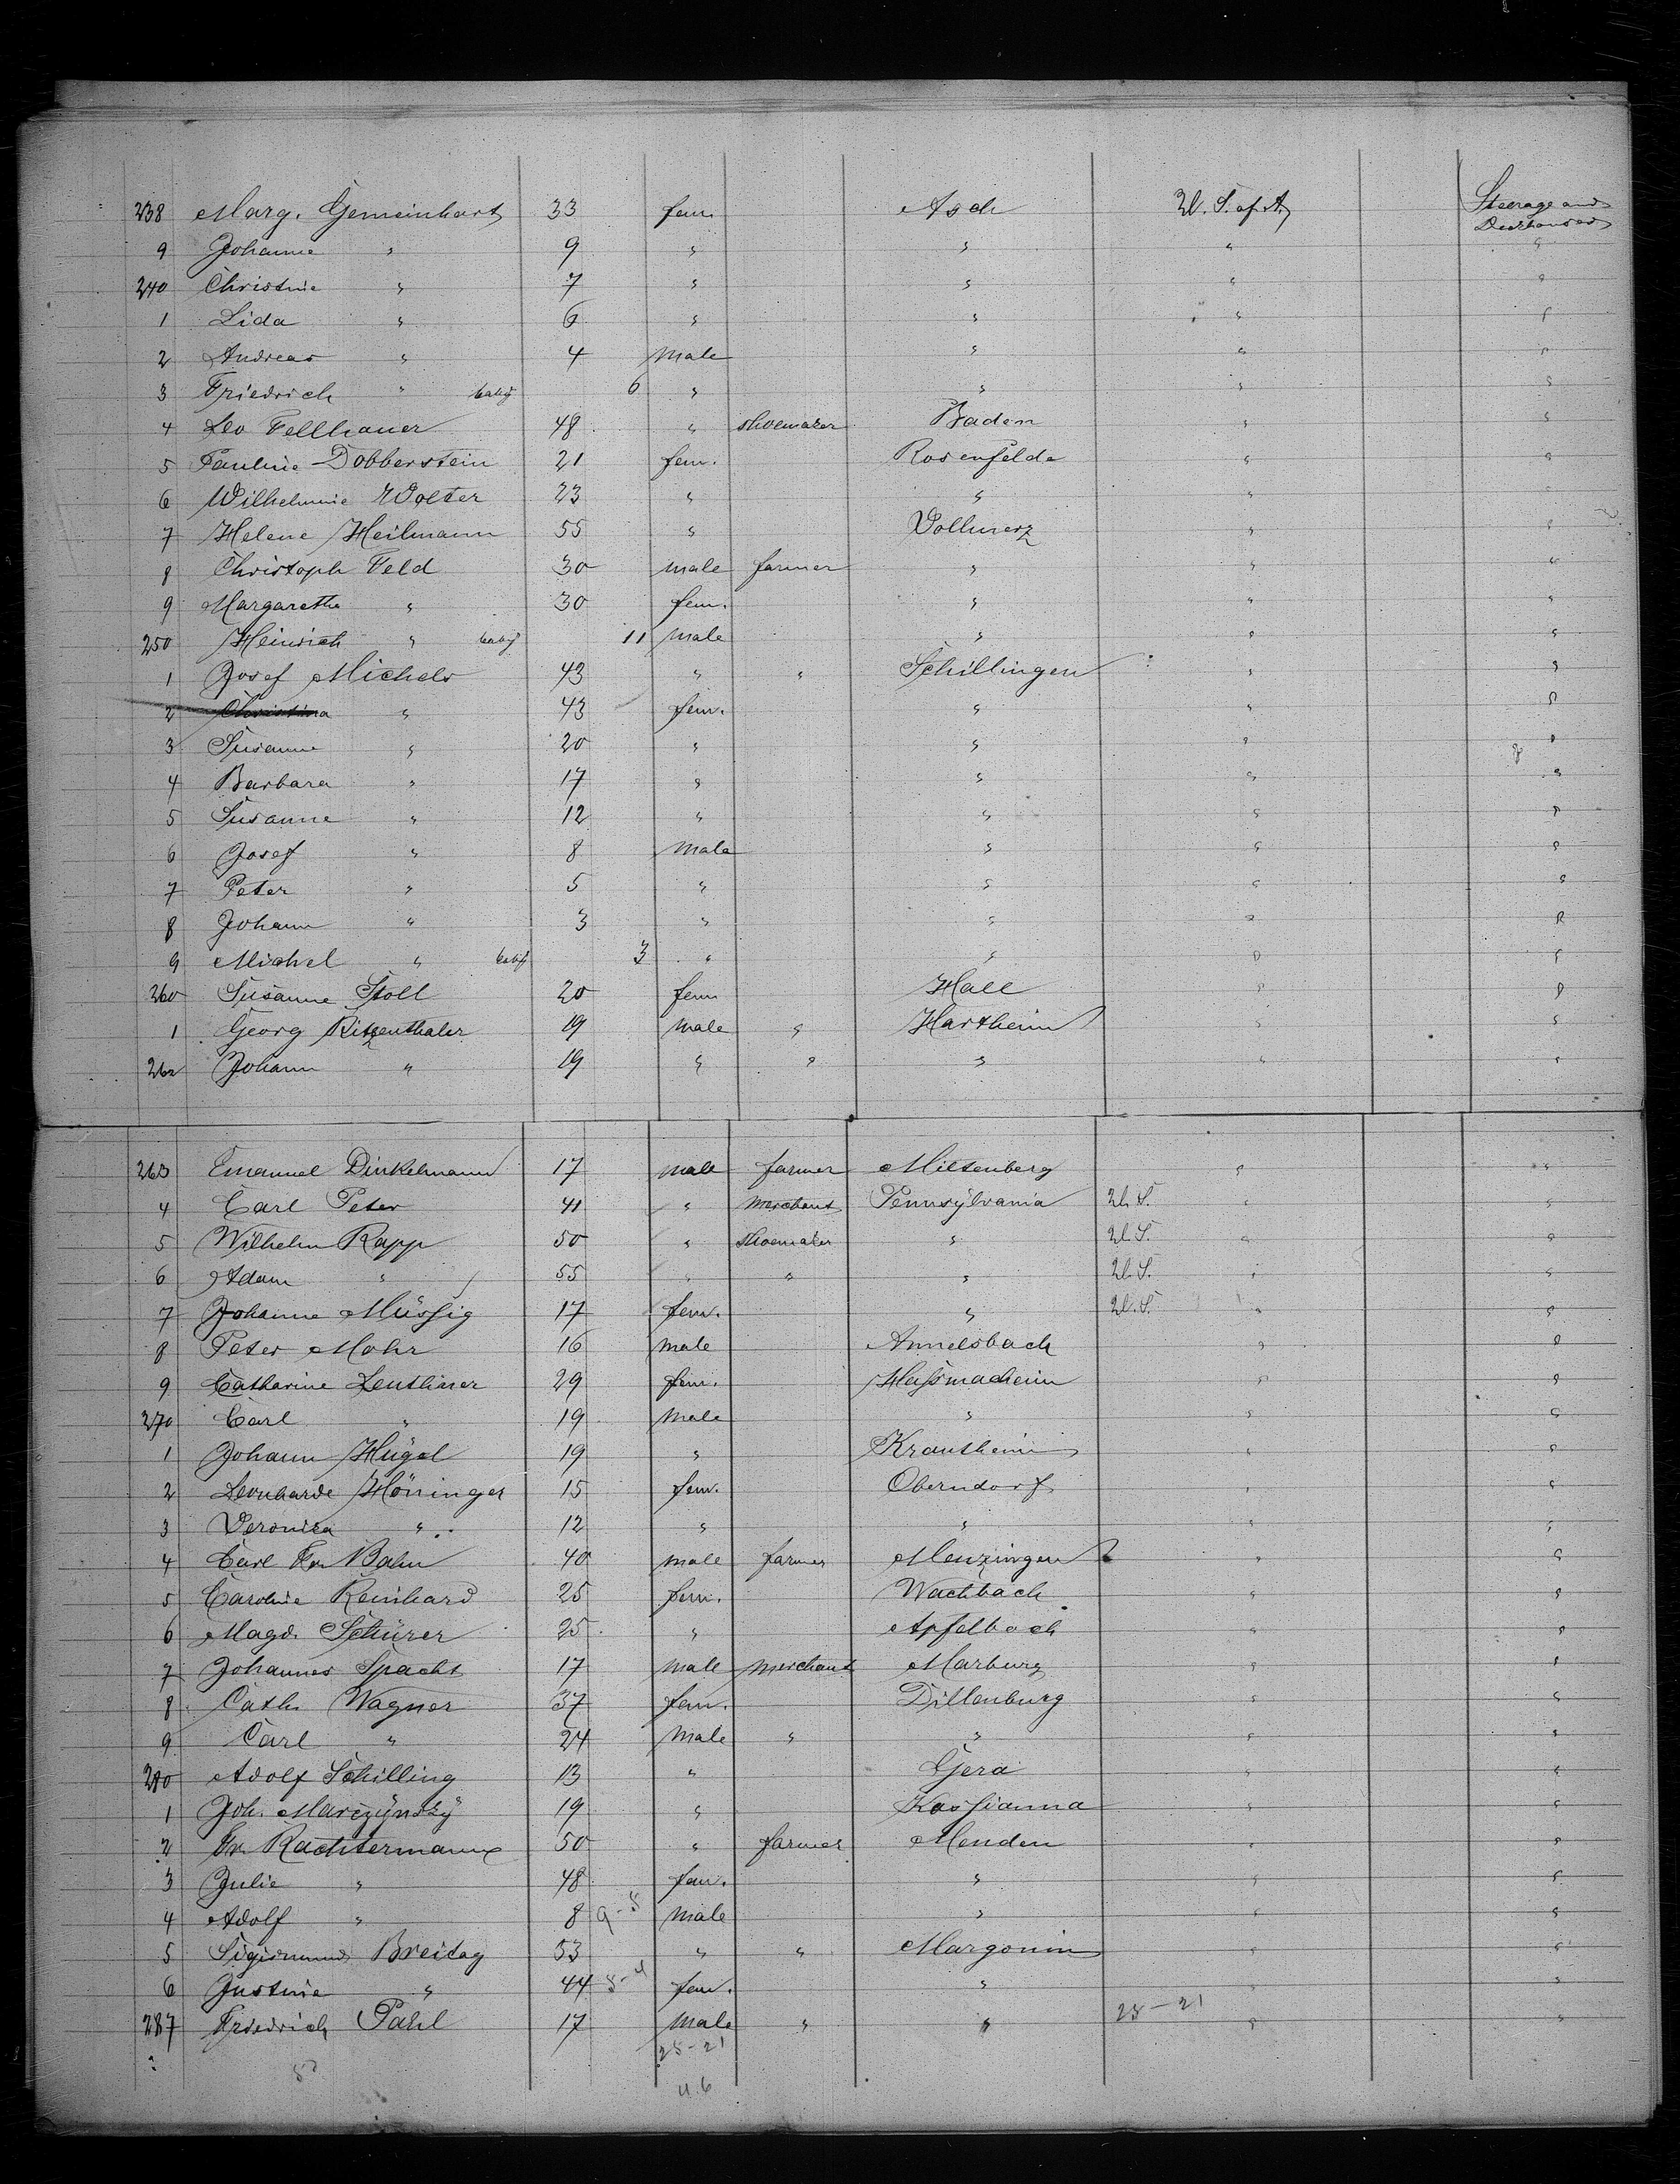 238 Marg. Gemeinhart 33 fem. Asch U. S. of A. Steerage and
9 Johanne " 9 " " " "
240 Christine " 7 " " " "
1 Lida " 6 " " " "
2 Andreas " 4 male " " "
3 Friedrich " baby 6 " " " "
4 Leo Fellhauer 48 " shoemaker Baden " "
5 Pauline Dobberstein 21 fem. Rosenfelde " "
6 Wilhelmine Wolter 23 " " " "
7 Helene Heilmann 55 " Vollmerz " "
8 Christoph Feld 30 male farmer " " "
9 Margaretha " 30 fem. " " "
250 Heinrich " baby 11 male " " "
1 Josef Michels 43 " " Schillingen " "
2 Christina " 43 fem. " " "
3 Susanne " 20 " " " "
4 Barbara " 17 " " " "
5 Susanne " 12 " " " "
6 Josef " 8 male " " "
7 Peter " 5 " " " "
8 Johann " 3 " " " "
9 Michel " baby 3 " " " "
260 Susanne Stoll 20 fem Hall " "
1 Georg Ritzenthaler 19 male " Hartheim " "
262 Johann " 19 " " " " "
263 Emanuel Dinkelmann 17 male farmer Miltenberg " "
4 Carl Peter 41 " merchant Pennsylvania U. S. " "
5 Wilhelm Rapp 50 " shoemaker " U. S. " "
6 Adam " 55 " " " U. S. " "
7 Johanne Müssig 17 fem. " U. S. " "
8 Peter Mohr 16 male Annelsbach " "
9 Catharine 29 fem. " "
270 Carl " 19 male " " "
1 Johann Hügel 19 " Krautheim " "
2 Leonharde Höninger 15 fem. Oberndorf " "
3 Veronika " 12 " " " "
4 Carl Fr. Bahn 40 male farmer Menzingen " "
5 Caroline Reinhard 25 fem. Wachbach " "
6 Magd. Schürer 25 " Apfelbach " "
7 Johannes Spacht 17 male merchant Marburg " "
8 Cath. Wagner 37 fem. Dillenburg " "
9 Carl " 24 male " " " "
280 Adolf Schilling 13 " Gera " "
1 Joh. Marczynsky 19 " Kossianna " "
2 Fr. Rachtermann 50 " farmer Menden " "
3 Julie " 48 fem. " " "
4 Adolf " 8 9-8 male " " "
5 Sigismund Breitag 53 " " Margonin " "
6 Justine " 44 fem. " " "
287 Friedrich Pahl 17 male " " 25-21 " "
25-21